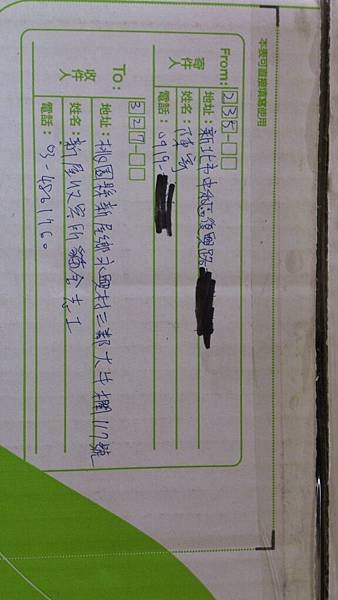 本表可直接填寫使用
From: 235-□□
寄件人
地址：新北市中和區復興路
姓名：陳寄
電話：0919-
To: 327-□□
收件人
地址：桃園縣新屋鄉永興村三鄰大牛欄117號
姓名：新屋收容所 志工
電話：03-4861760